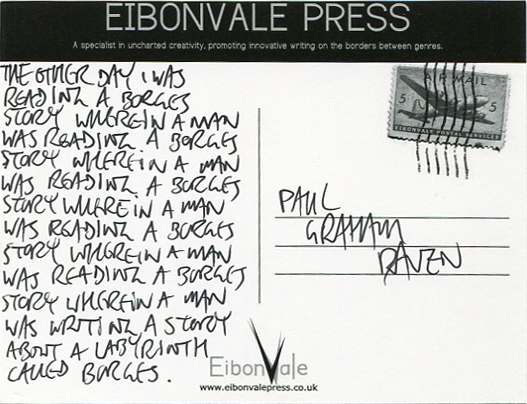 EIBONVALE PRESS
A specialist in uncharted creativity, promoting innovative writing on the borders between genres.
THE OTHER DAY I WAS
READING A BORGES
STORY WHEREIN A MAN
WAS READING A BORGES
STORY WHEREIN A MAN
WAS READING A BORGES
STORY WHEREIN A MAN
WAS READING A BORGES
STORY WHEREIN A MAN
WAS READING A BORGES
STORY WHEREIN A MAN
WAS WRITING A STORY
ABOUT A LABYRINTH
CALLED BORGES.
AIR MAIL
5 5
EIBONVALE POSTAL SERVICES
PAUL
GRAHAM
RAVEN
EibonVale
www.eibonvalepress.co.uk